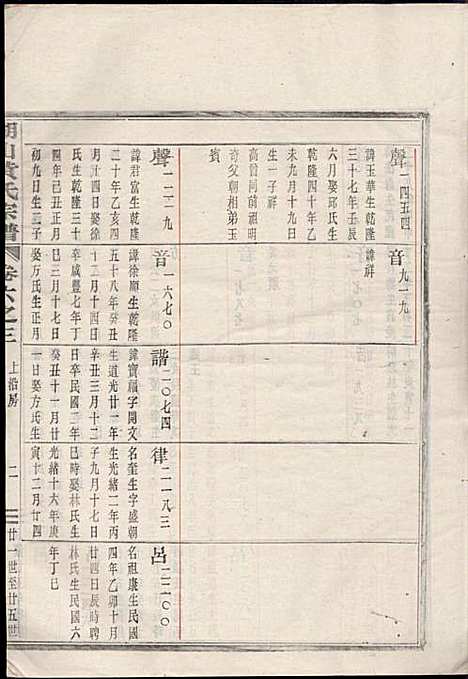 聲一四五四
諱玉華生乾隆
三十七年壬辰
六月娶邱氏生
乾隆四十年乙
未九月十九日
生一子祥
高曾同前祖明
奇父朝相弟玉
賓
音九一九
諱祥
聲一二二九
諱君富生乾隆
二十年乙亥四
月廿四日娶徐
氏生乾隆三十
四年己丑正月
初九日生三子
音一六七〇
諱徐順生乾隆
五十八年癸丑
十二月十四日
卒咸豐七年丁
巳三月十七日
娶方氏生正月
諧二〇七四
諱寶福字開文
生道光廿一年
辛丑三月十二
日卒民國三年
癸丑十一月廿
一日娶方氏生
律二一八三
名奎生字盛朝
生光緒二年丙
子九月十七日
巳時娶林氏生
光緒十六年庚
寅十二月廿四
呂二二〇〇
名祖康生民國
四年乙卯十月
廿四日辰時聘
林氏生民國六
年丁巳
山黃氏宗譜
卷六之三
上沿房
二
廿一世至廿五世